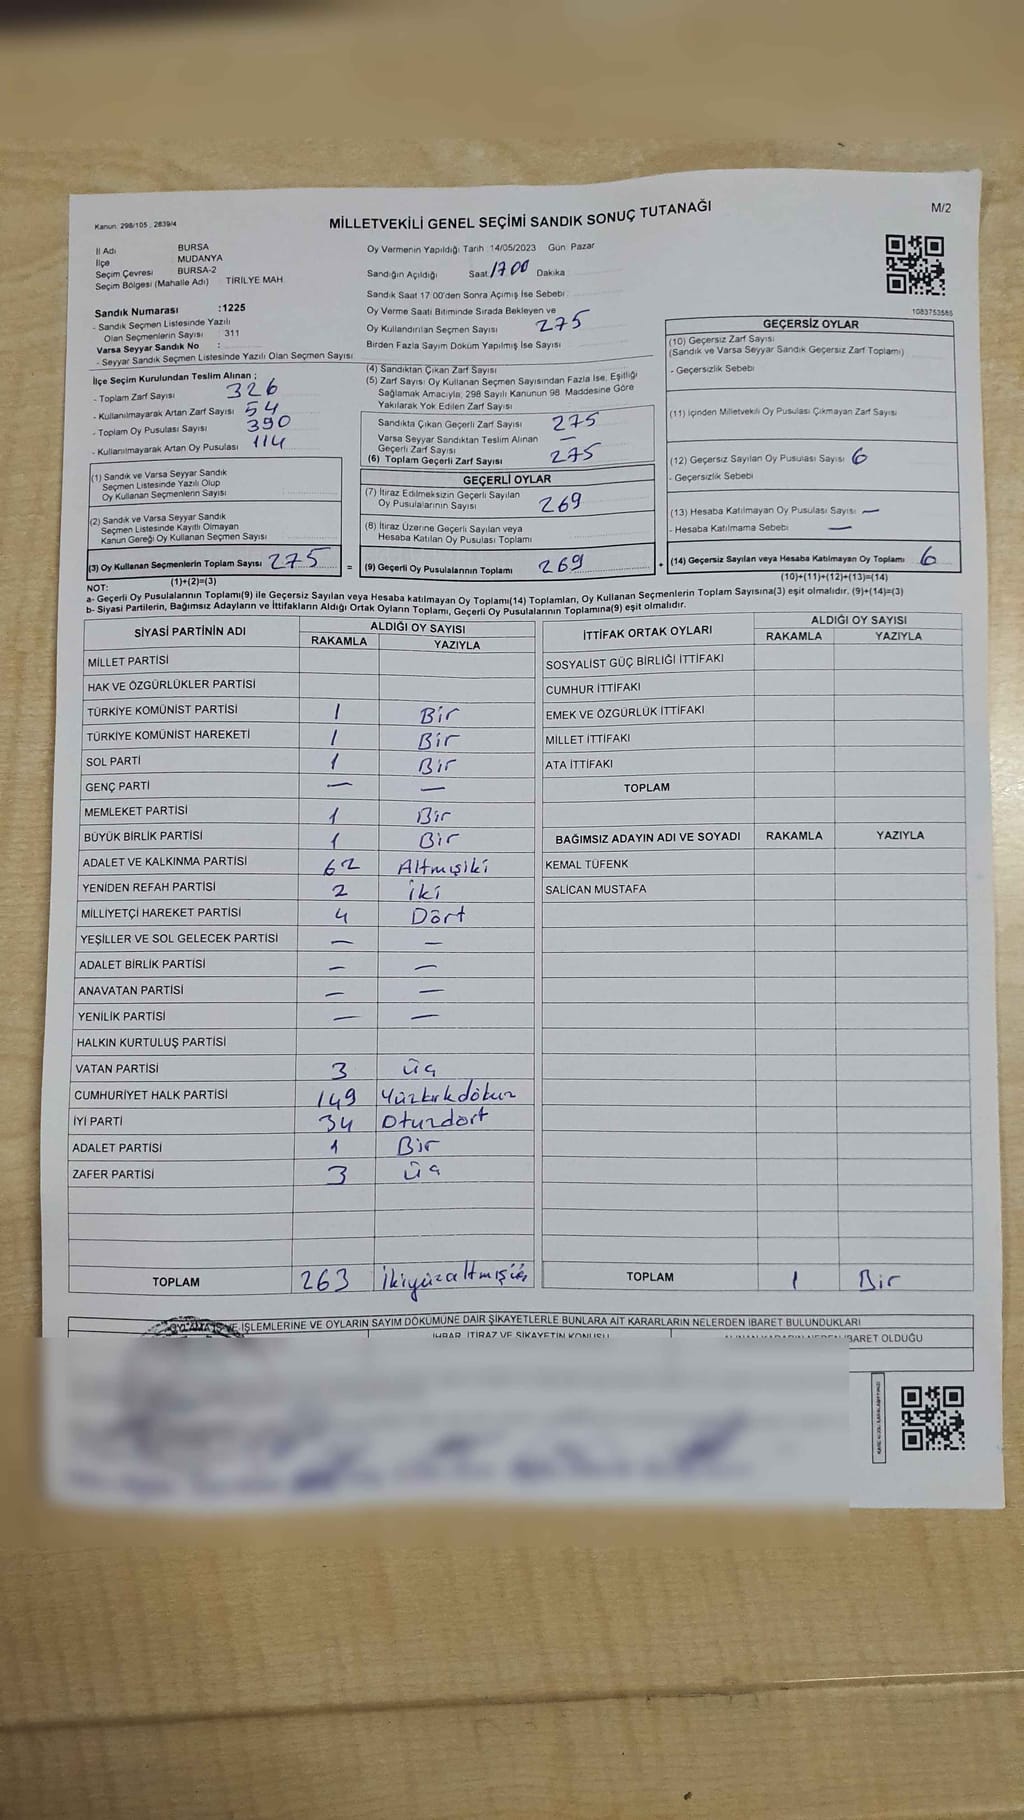 Kanun: 298/105 , 2839/4
MİLLETVEKİLİ GENEL SEÇİMİ SANDIK SONUÇ TUTANAĞI
M/2
İl Adı BURSA
İlçe MUDANYA
Seçim Çevresi BURSA-2
Seçim Bölgesi (Mahalle Adı) TİRİLYE MAH
Sandık Numarası :1225
- Sandık Seçmen Listesinde Yazılı
Olan Seçmenlerin Sayısı : 311
Varsa Seyyar Sandık No :
- Seyyar Sandık Seçmen Listesinde Yazılı Olan Seçmen Sayısı
Oy Vermenin Yapıldığı Tarih 14/05/2023 Gün: Pazar
Sandığın Açıldığı Saat: 1700 Dakika
Sandık Saat 17:00'den Sonra Açımış İse Sebebi:
Oy Verme Saati Bitiminde Sırada Bekleyen ve
Oy Kullandırılan Seçmen Sayısı 275
Birden Fazla Sayım Döküm Yapılmış İse Sayısı
1083753585
İlçe Seçim Kurulundan Teslim Alınan ;
- Toplam Zarf Sayısı 326
- Kullanılmayarak Artan Zarf Sayısı 54
- Toplam Oy Pusulası Sayısı 390
- Kullanılmayarak Artan Oy Pusulası 114
(1) Sandık ve Varsa Seyyar Sandık
Seçmen Listesinde Yazılı Olup
Oy Kullanan Seçmenlerin Sayısı
(2) Sandık ve Varsa Seyyar Sandık
Seçmen Listesinde Kayıtlı Olmayan
Kanun Gereği Oy Kullanan Seçmen Sayısı
(3) Oy Kullanan Seçmenlerin Toplam Sayısı 275 =
(1)+(2)=(3)
(4) Sandıktan Çıkan Zarf Sayısı
(5) Zarf Sayısı Oy Kullanan Seçmen Sayısından Fazla İse, Eşitliği
Sağlamak Amacıyla, 298 Sayılı Kanunun 98. Maddesine Göre
Yakılarak Yok Edilen Zarf Sayısı
Sandıkta Çıkan Geçerli Zarf Sayısı 275
Varsa Seyyar Sandıktan Teslim Alınan
Geçerli Zarf Sayısı —
(6) Toplam Geçerli Zarf Sayısı 275
GEÇERLİ OYLAR
(7) İtiraz Edilmeksizin Geçerli Sayılan
Oy Pusulalarının Sayısı 269
(8) İtiraz Üzerine Geçerli Sayılan veya
Hesaba Katılan Oy Pusulası Toplamı
(9) Geçerli Oy Pusulalarının Toplamı 269 +
GEÇERSİZ OYLAR
(10) Geçersiz Zarf Sayısı
(Sandık ve Varsa Seyyar Sandık Geçersiz Zarf Toplamı)
- Geçersizlik Sebebi
(11) İçinden Milletvekili Oy Pusulası Çıkmayan Zarf Sayısı
(12) Geçersiz Sayılan Oy Pusulası Sayısı 6
- Geçersizlik Sebebi
(13) Hesaba Katılmayan Oy Pusulası Sayısı —
- Hesaba Katılmama Sebebi —
(14) Geçersiz Sayılan veya Hesaba Katılmayan Oy Toplamı 6
(10)+(11)+(12)+(13)=(14)
NOT:
a- Geçerli Oy Pusulalarının Toplamı(9) ile Geçersiz Sayılan veya Hesaba katılmayan Oy Toplamı(14) Toplamları, Oy Kullanan Seçmenlerin Toplam Sayısına(3) eşit olmalıdır. (9)+(14)=(3)
b- Siyasi Partilerin, Bağımsız Adayların ve İttifakların Aldığı Ortak Oyların Toplamı, Geçerli Oy Pusulalarının Toplamına(9) eşit olmalıdır.
SİYASİ PARTİNİN ADI ALDIĞI OY SAYISI
RAKAMLA YAZIYLA
MİLLET PARTİSİ
HAK VE ÖZGÜRLÜKLER PARTİSİ
TÜRKİYE KOMÜNİST PARTİSİ 1 Bir
TÜRKİYE KOMÜNİST HAREKETİ 1 Bir
SOL PARTİ 1 Bir
GENÇ PARTİ — —
MEMLEKET PARTİSİ 1 Bir
BÜYÜK BİRLİK PARTİSİ 1 Bir
ADALET VE KALKINMA PARTİSİ 62 Altmışiki
YENİDEN REFAH PARTİSİ 2 İki
MİLLİYETÇİ HAREKET PARTİSİ 4 Dört
YEŞİLLER VE SOL GELECEK PARTİSİ — —
ADALET BİRLİK PARTİSİ — —
ANAVATAN PARTİSİ — —
YENİLİK PARTİSİ — —
HALKIN KURTULUŞ PARTİSİ
VATAN PARTİSİ 3 üç
CUMHURİYET HALK PARTİSİ 149 Yüzkırkdokuz
İYİ PARTİ 34 Otuzdört
ADALET PARTİSİ 1 Bir
ZAFER PARTİSİ 3 üç
TOPLAM 263 İkiyüzaltmışüç
İTTİFAK ORTAK OYLARI ALDIĞI OY SAYISI
RAKAMLA YAZIYLA
SOSYALİST GÜÇ BİRLİĞİ İTTİFAKI
CUMHUR İTTİFAKI
EMEK VE ÖZGÜRLÜK İTTİFAKI
MİLLET İTTİFAKI
ATA İTTİFAKI
TOPLAM
BAĞIMSIZ ADAYIN ADI VE SOYADI RAKAMLA YAZIYLA
KEMAL TÜFENK
SALİCAN MUSTAFA
TOPLAM 1 Bir
OYLAMA İŞ VE İŞLEMLERİNE VE OYLARIN SAYIM DÖKÜMÜNE DAİR ŞİKAYETLERLE BUNLARA AİT KARARLARIN NELERDEN İBARET BULUNDUKLARI
İHBAR, İTİRAZ VE ŞİKAYETİN KONUSU
İBARET OLDUĞU